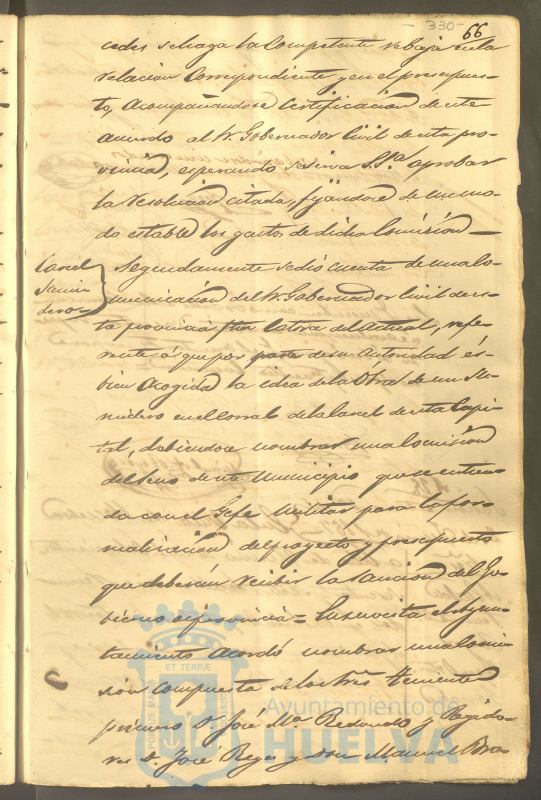 330
66
cedes se haga la Competente rebaja en la
relacion correspondiente y en el presupues-
to, acompañandose Certificacion de este
acuerdo al Sr. Gobernador Civil de esta pro-
vincia, esperando se sirva S.Sª. aprobar
la resolucion citada, fijandose de un mo-
do estable los gastos de dicha Comision
Carcel
Sumi-
dero
Seguidamente se dió cuenta de una co-
municacion del Sr. Gobernador Civil de es-
ta provincia fha Catorce del Actual, refe-
rente á que por parte de su Autoridad es
bien acogida la idea de la Obra de un Su-
midero en el Corral de la Carcel de esta Capi-
tal, debiendose nombrar una Comision
del Seno de este Municipio que se entien-
da con el Gefe Militar para la for-
malizacion del proyecto y presupuesto
que deberán recibir la sancion del Go-
bierno de provincia = En su vista el Ayun-
tamiento acordó nombrar una Comi-
sion compuesta de los Sres. Teniente
primero D. José Mª. Redondo y Regido-
res D. José Rey y Don Manuel
PORTUS MARIS
ET TERRÆ
CUSTODIA
Ayuntamiento de
HUELVA